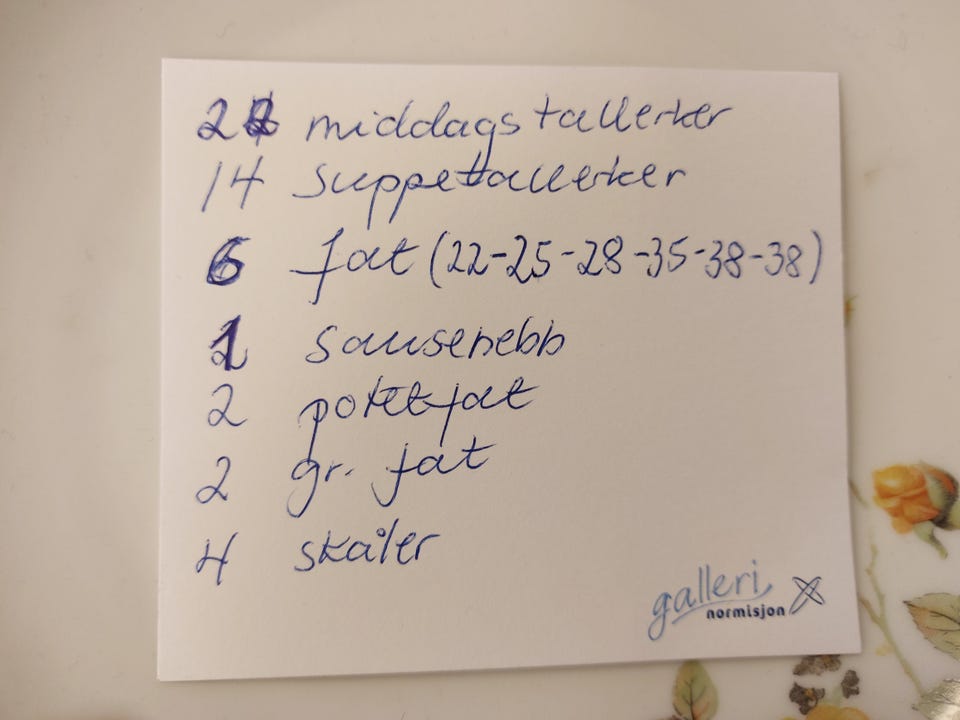 22 middagstallerker
14 suppetallerker
6 fat (22-25-28-35-38-38)
1 sausenebb
2 potetfat
2 gr. fat
4 skåler
galleri
normisjon